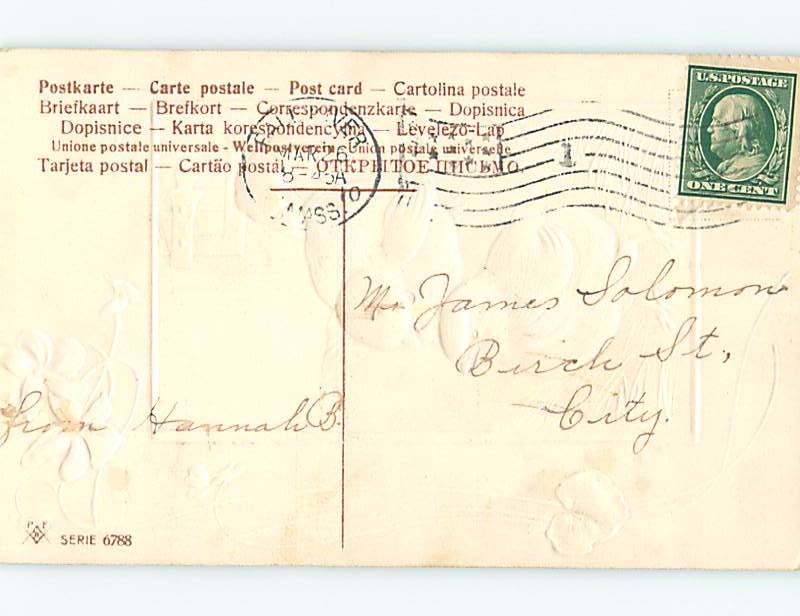 Postkarte — Carte postale — Post card — Cartolina postale
Briefkaart — Brefkort — Correspondenzkarte — Dopisnica
Dopisnice — Karta korespondencyjna — Levelező-Lap
Unione postale universale - Weltpostverein - Union postale universelle
Tarjeta postal — Cartão postal — ОТКРЫТОЕ ПИСЬМО.
MAR 26
10
MASS.
1
U.S. POSTAGE
ONE CENT
Mr James Solomon
Birch St,
City.
From Hannah B.
P F
B
SERIE 6788